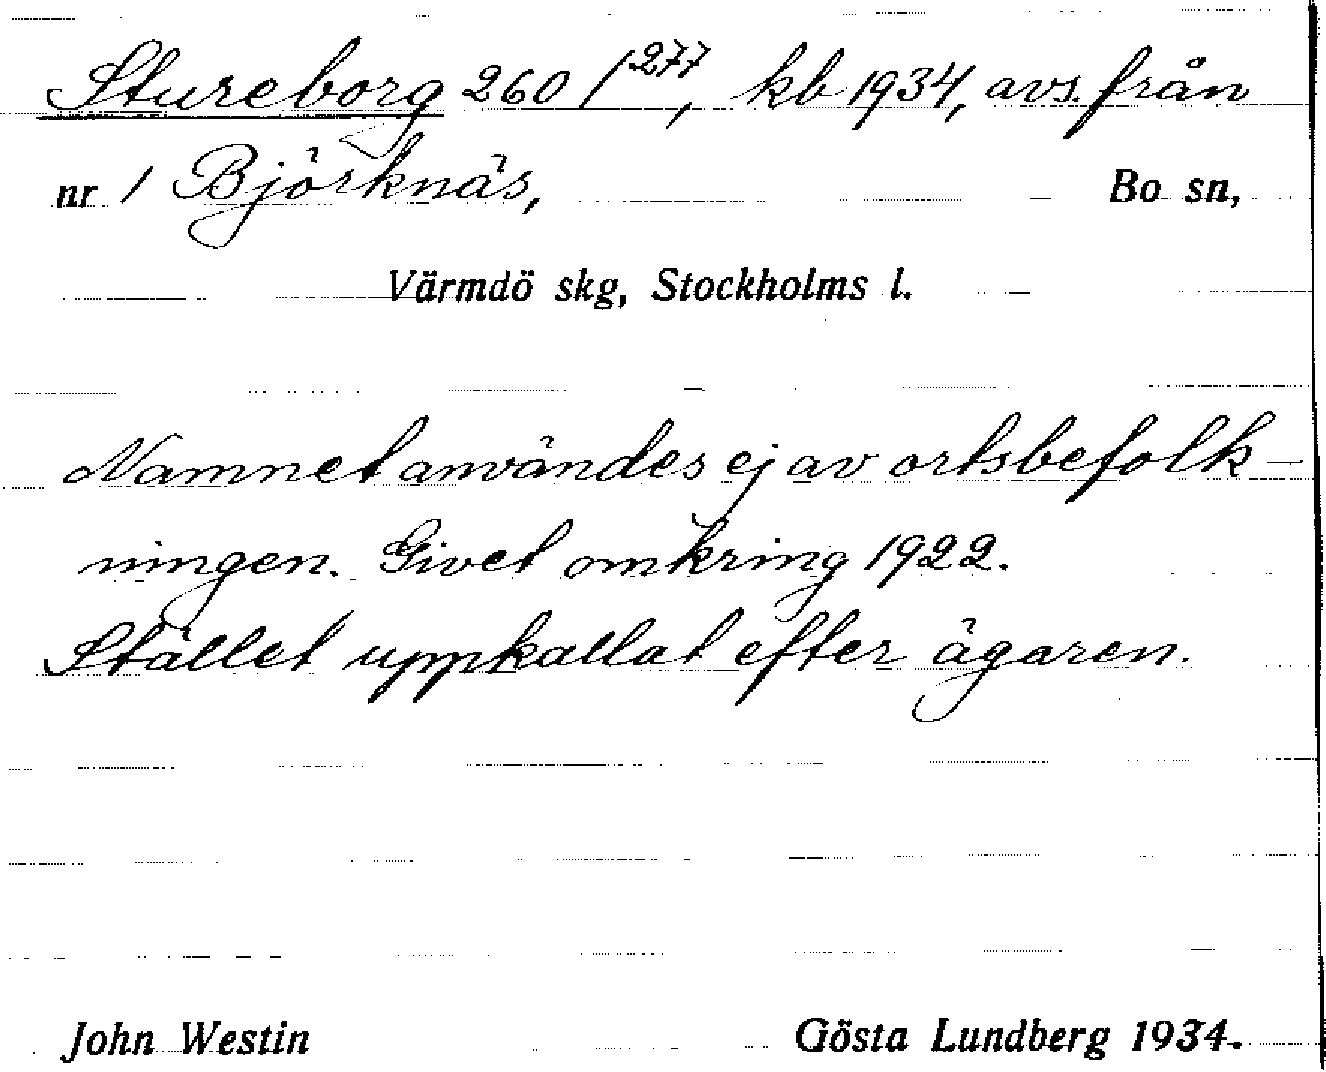 Stureborg 260 /277, kb 1934, avs. från
nr 1 Björknäs, Bo sn,
Värmdö skg, Stockholms l.
Namnet användes ej av ortsbefolk-
ningen. Givet omkring 1922.
Stället uppkallat efter ägaren.
John Westin Gösta Lundberg 1934.